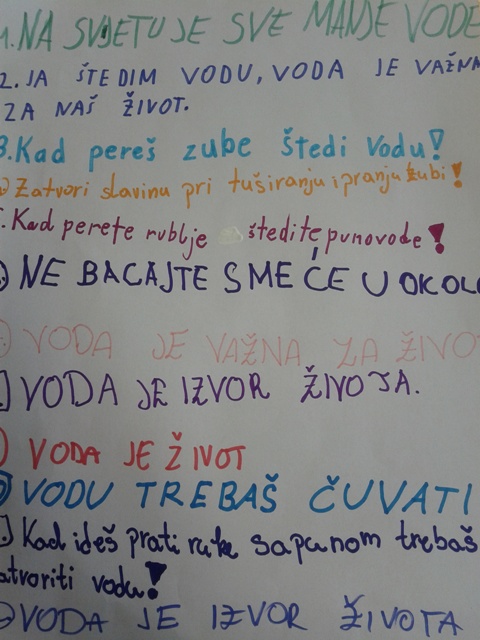 1.NA SVIJETU JE SVE MANJE VODE
2. JA ŠTEDIM VODU, VODA JE VAŽNA
ZA NAŠ ŽIVOT.
3.Kad pereš zube štedi vodu!
Zatvori slavinu pri tuširanju i pranju zubi!
Kad perete rublje štedite puno vode!
NE BACAJTE SMEĆE U OKOL
VODA JE VAŽNA ZA ŽIVO
VODA JE IZVOR ŽIVOTA.
VODA JE ŽIVOT
VODU TREBAŠ ČUVATI
Kad ideš prati ruke sapunom trebaš
atvoriti vodu!
VODA JE IZVOR ŽIVOTA